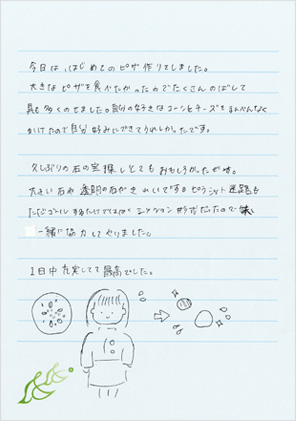 今日は、はじめてのピザ作りをしました。
大きなピザを食べたかったのでたくさんのばして
具も多くのせました。自分の好きなコーンとチーズをまんべんなく
かけたので自分好みにできてうれしかったです。
久しぶりの石の宝探しとてもおもしろかったです。
大きい石や透明の石がきれいです。ピラミット迷路も
ただゴールするだけではなく ミッション
一緒に協力してやりました。
1日中充実してて最高でした。